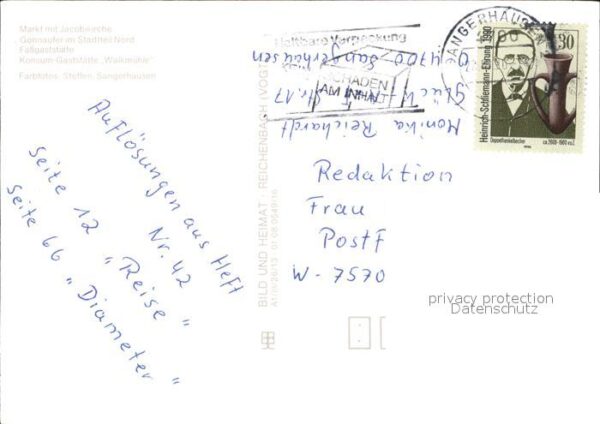 Markt mit Jacobikirche
Gonnaufer im Stadtteil Nord
Faßgaststätte
Konsum-Gaststätte „Walkmühle"
Farbfotos: Steffen, Sangerhausen
Auflösungen aus Heft
Nr. 42
Seite 12 „Reise"
Seite 66 „Diameter"
BILD UND HEIMAT · REICHENBACH (VOGTL)
Haltbare Verpackung
SCHADEN
AM INHALT
Monika Reichardt
Str. 17
O-4700 Sangerhausen
SANGERHAUSEN
Heinrich-Schliemann-Ehrung 1990
30
Doppelhenkelbecher
ca. 2600-1900 v.u.Z.
Redaktion
Frau
Postf
W-7570
privacy protection
Datenschutz